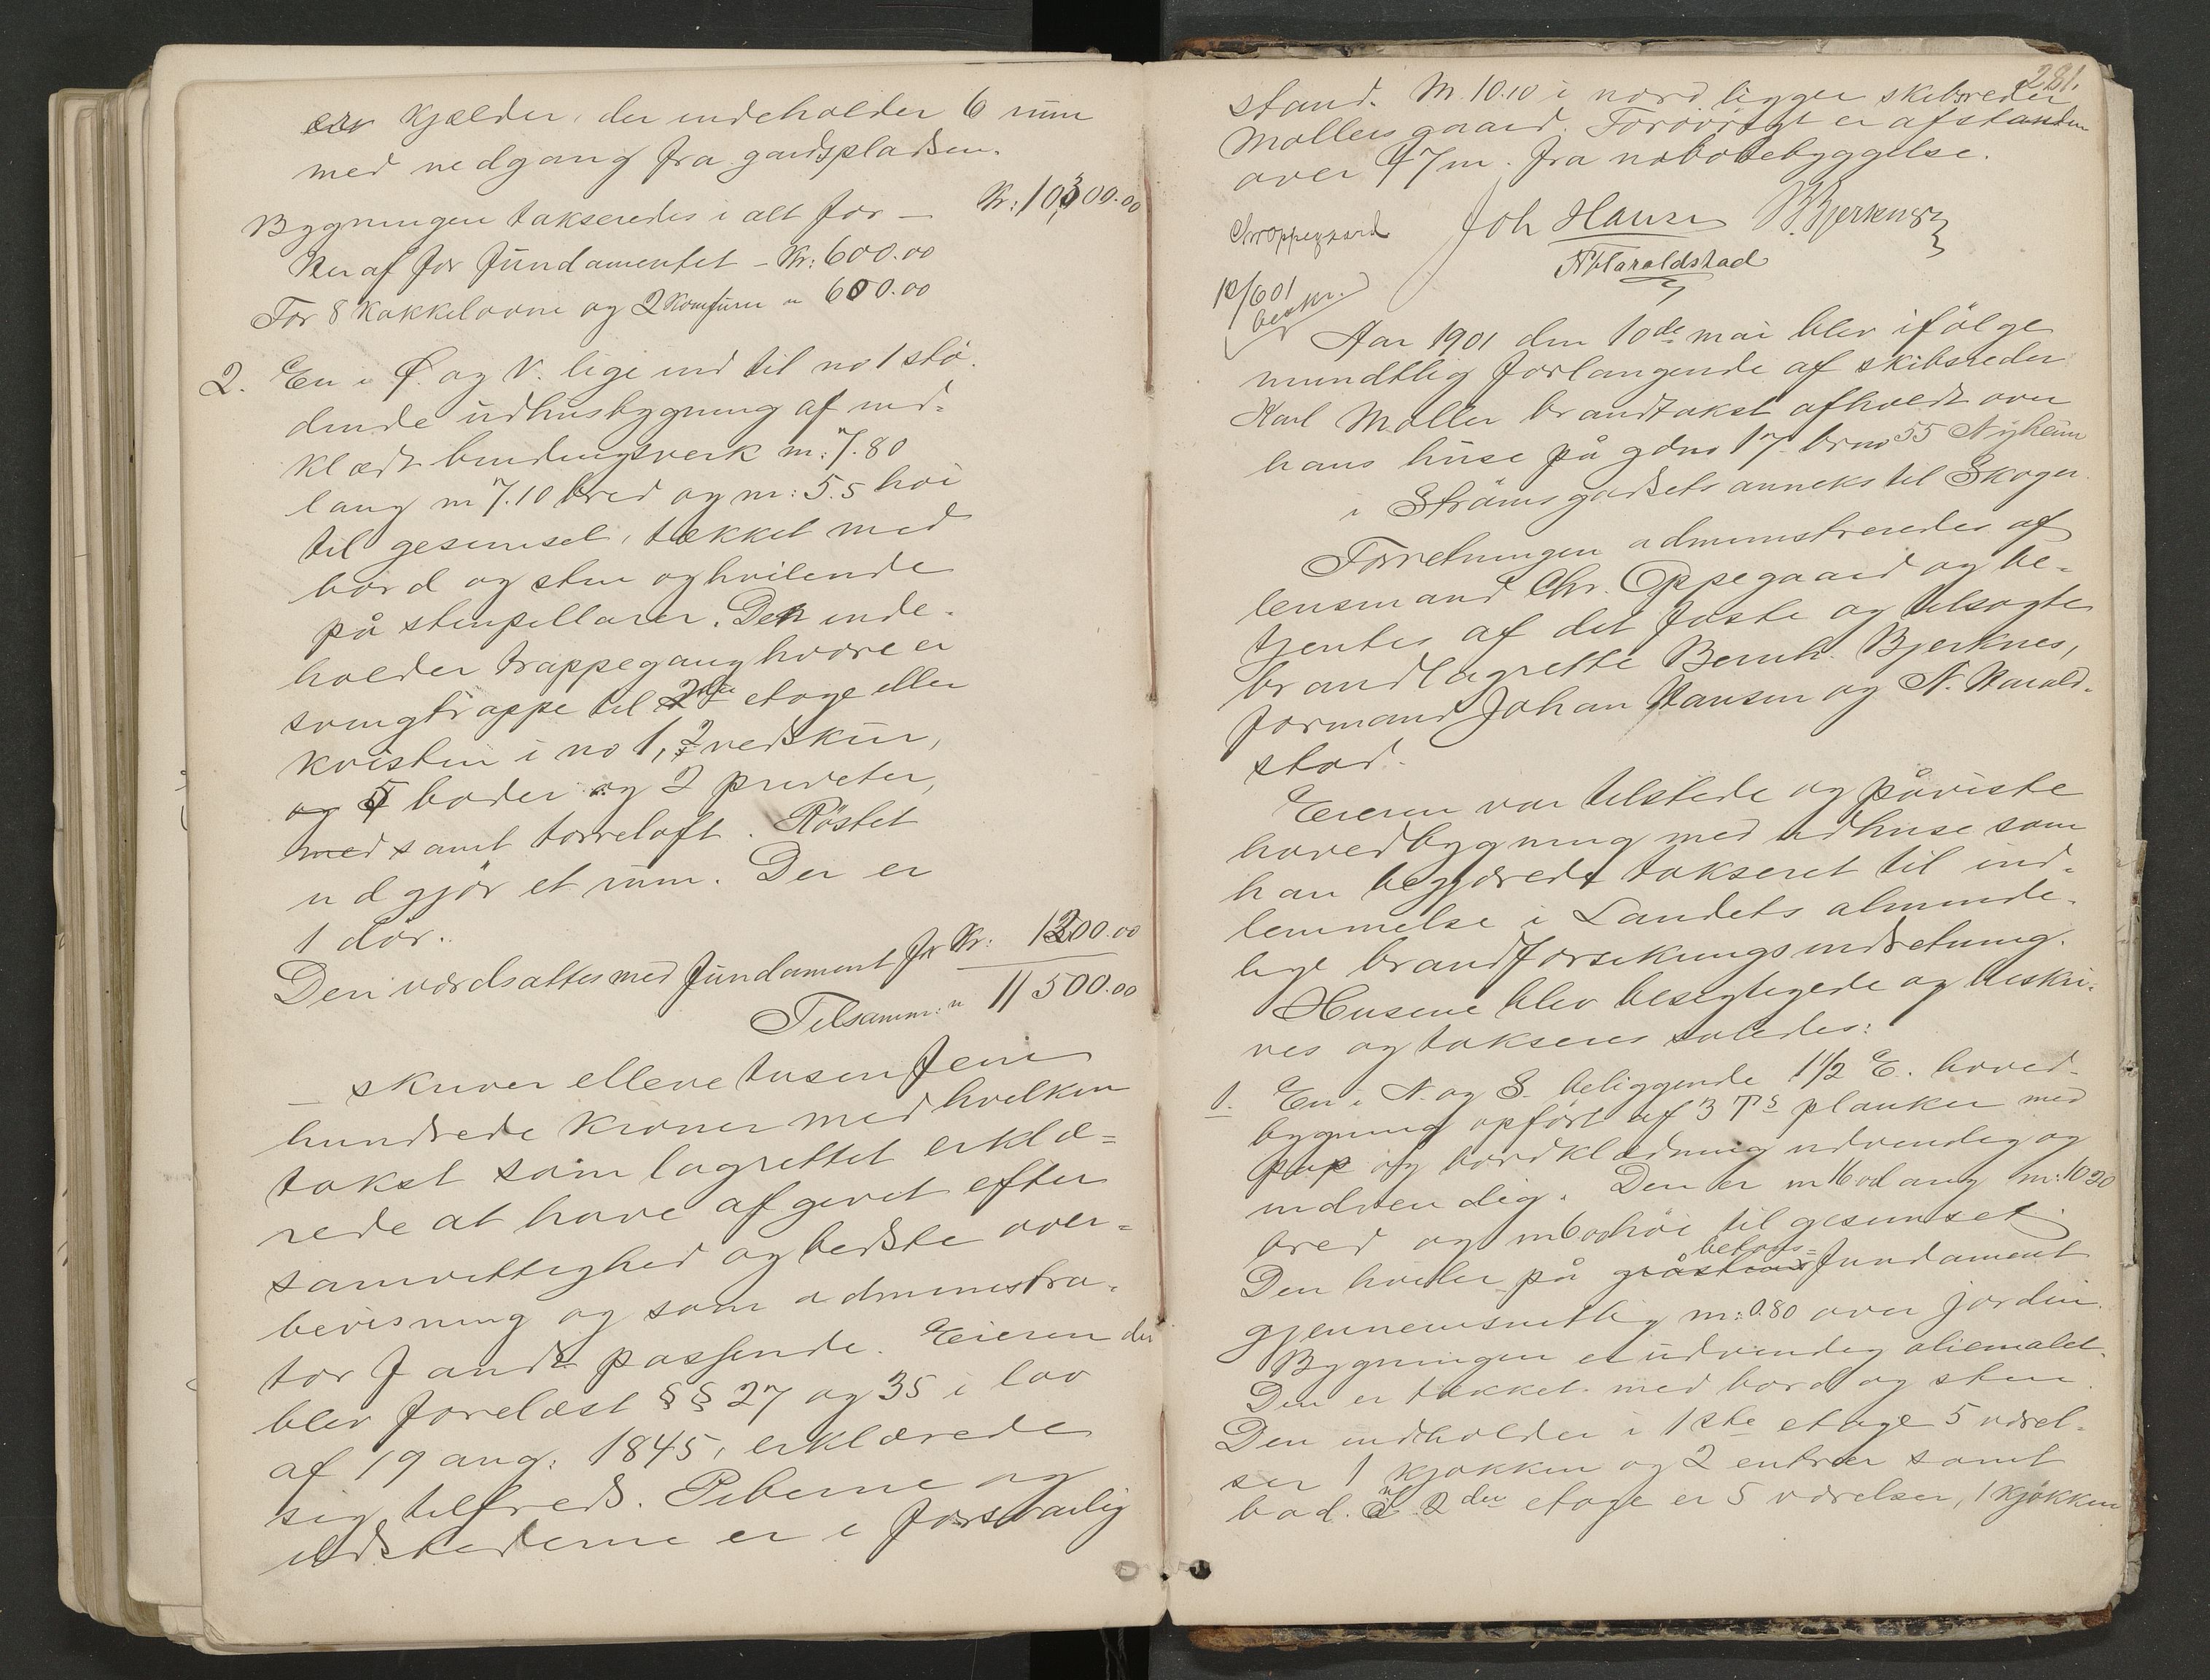 kjælder, der indeholder 6 rum
med nedgang fra gardspladsen.
Bygningen takseredes i alt for — Kr: 10,300.00
Heraf for fundamentet - Kr: 600.00
For 8 kakkelovne og 2 komfure " 600.00
2. En i Ø. og V. lige ind til no 1 stö-
dende udhusbygning af ind-
klædt bindingsverk m: 7.80
lang m 7.10 bred og m: 5.5 höi
til gesimset, tækket med
bord og sten og hvilende
på stenpillarer. Den inde-
holder trappegang hvore er
svingtrappe til 2den etage eller
kvisten i no 1, 2 vedskur,
og 5 boder og 2 priveter,
med samt tørreloft. Röstet
udgjör et rum. Der er
1 dör.
Den værdsattes med fundament for Kr: 1200.00
Tilsamm: " 11500.00
— skriver elleve tusen fem
hundrede kroner med hvilken
takst som lagrettet erklæ=
rede at have afgivet efter
samvittighed og bedste over=
bevisning og som administra-
tor fandt passende. Eieren der
blev forelæst §§ 27 og 35 i lov
af 19 aug: 1845, erklærede
sig tilfreds. Piberne og
ildstederne er i forsvarlig
281.
stand. M. 10.10 i nord ligger skibsreder
Møllers gaard. Forövrigt er afstanden
over 47 m. fra nabobebyggelse.
Chr Oppegaard Joh Hansen B. Bjerknes
N Haraldstad
12/6 01
beskr.
Aar 1901 den 10de mai blev ifölge
mundtlig forlangende af skibsreder
Karl Møller brandtakst afholdt over
hans huse på gdno 17 brno 55 Nyheim
i Strömsgodsets anneks til Skoger.
Forretningen administreredes af
lensmand Chr. Oppegaard og be-
tjentes af det faste og tilsagte
brandlagrette Bernh. Bjerknes,
formand Johan Hansen og N. Harald-
stad.
Eieren var tilstede og påviste
hovedbygning med udhuse som
han begjærede takseret til ind-
lemmelse i Landets alminde-
lige brandforsikringsindretning.
Husene blev besigtigede og beskri-
ves og takseres således:
1. En i N. og S. beliggende 1 1/2 E. hoved-
bygning opfört af 3 T's planker med
pap og bordklædning udvendig og
indvendig. Den er m 16 od ang m: 10 30
bred og m 6 00 höi til gesimset.
Den hviler på gråstens betons= fundament
gjennemsnitlig m: 0.80 over jorden.
Bygningen er udvendig oliemalet.
Den er tækket med bord og sten.
Den indholder i 1ste etage 5 værel-
ser 1 kjökken og 2 entreer samt
bad. I 2den etage er 5 værelser, 1 kjökken